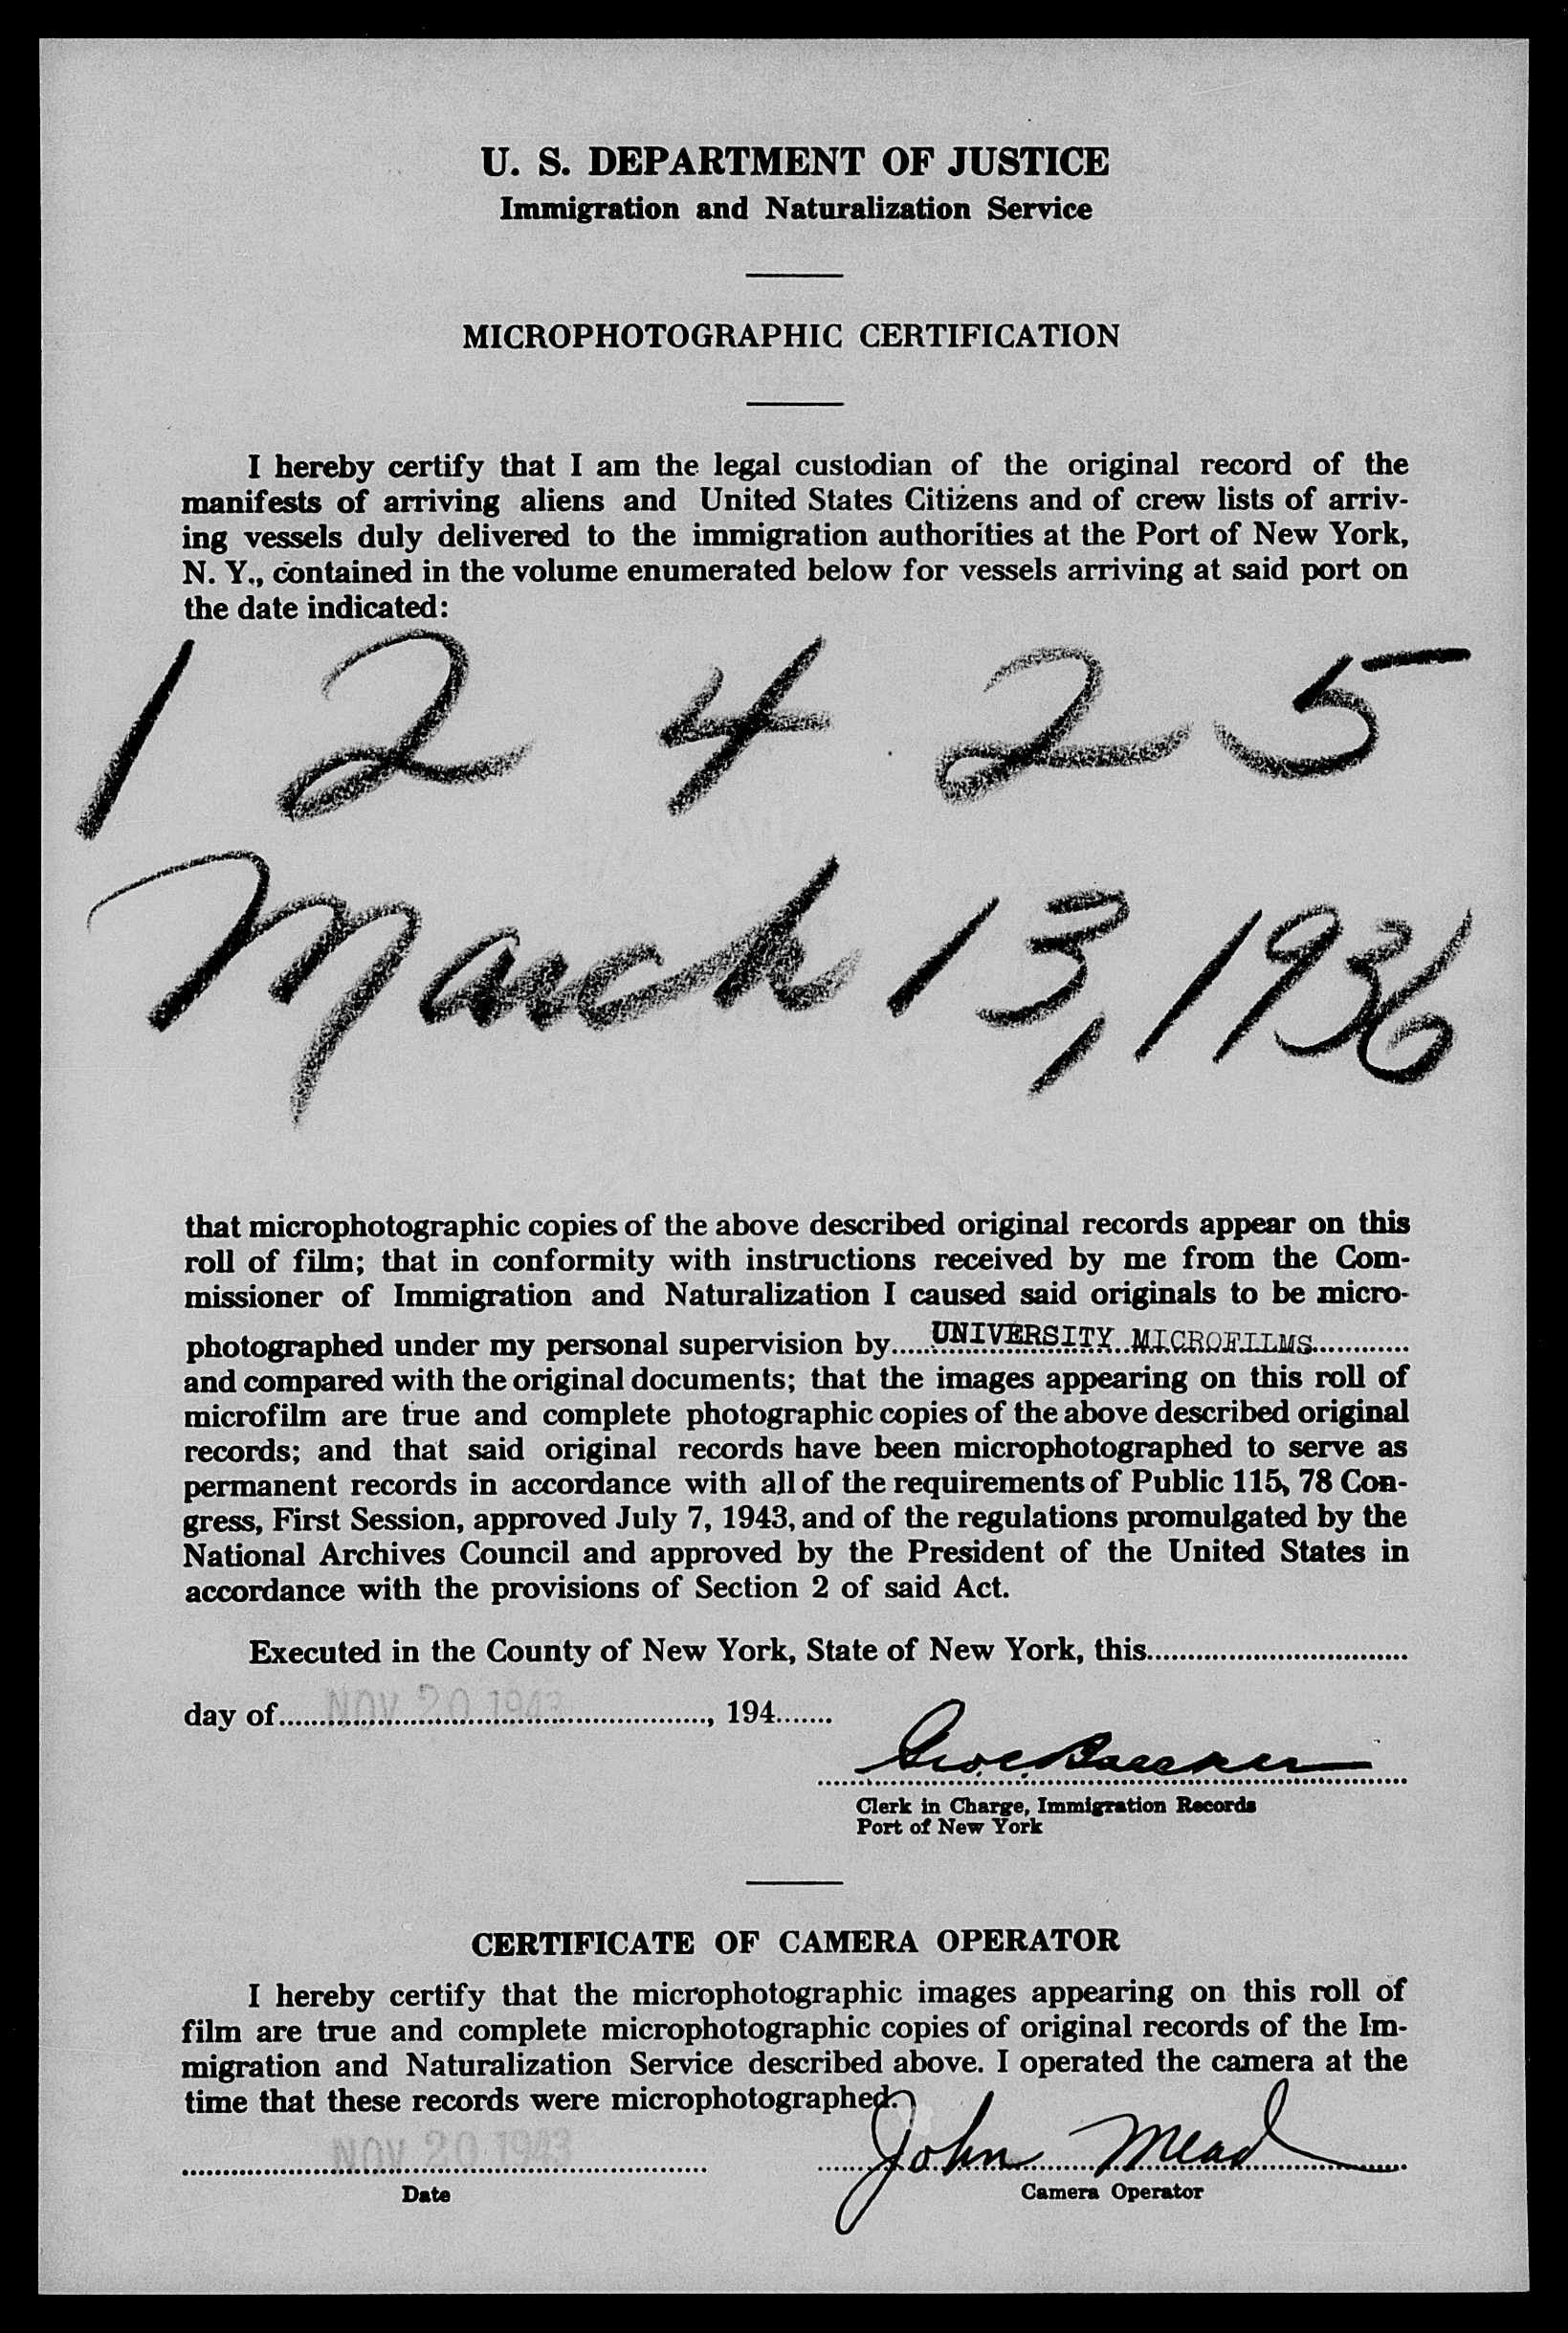 U. S. DEPARTMENT OF JUSTICE
Immigration and Naturalization Service
MICROPHOTOGRAPHIC CERTIFICATION
I hereby certify that I am the legal custodian of the original record of the
manifests of arriving aliens and United States Citizens and of crew lists of arriv-
ing vessels duly delivered to the immigration authorities at the Port of New York,
N. Y., contained in the volume enumerated below for vessels arriving at said port on
the date indicated:
1 2 4 2 5
March 13, 1936
that microphotographic copies of the above described original records appear on this
roll of film; that in conformity with instructions received by me from the Com-
missioner of Immigration and Naturalization I caused said originals to be micro-
photographed under my personal supervision by.....UNIVERSITY MICROFILMS............
and compared with the original documents; that the images appearing on this roll of
microfilm are true and complete photographic copies of the above described original
records; and that said original records have been microphotographed to serve as
permanent records in accordance with all of the requirements of Public 115, 78 Con-
gress, First Session, approved July 7, 1943, and of the regulations promulgated by the
National Archives Council and approved by the President of the United States in
accordance with the provisions of Section 2 of said Act.
Executed in the County of New York, State of New York, this................................
day of......NOV 20 1943......, 194.......
Geo. C.
Clerk in Charge, Immigration Records
Port of New York
CERTIFICATE OF CAMERA OPERATOR
I hereby certify that the microphotographic images appearing on this roll of
film are true and complete microphotographic copies of original records of the Im-
migration and Naturalization Service described above. I operated the camera at the
time that these records were microphotographed.
NOV 20 1943 John Mead
Date Camera Operator